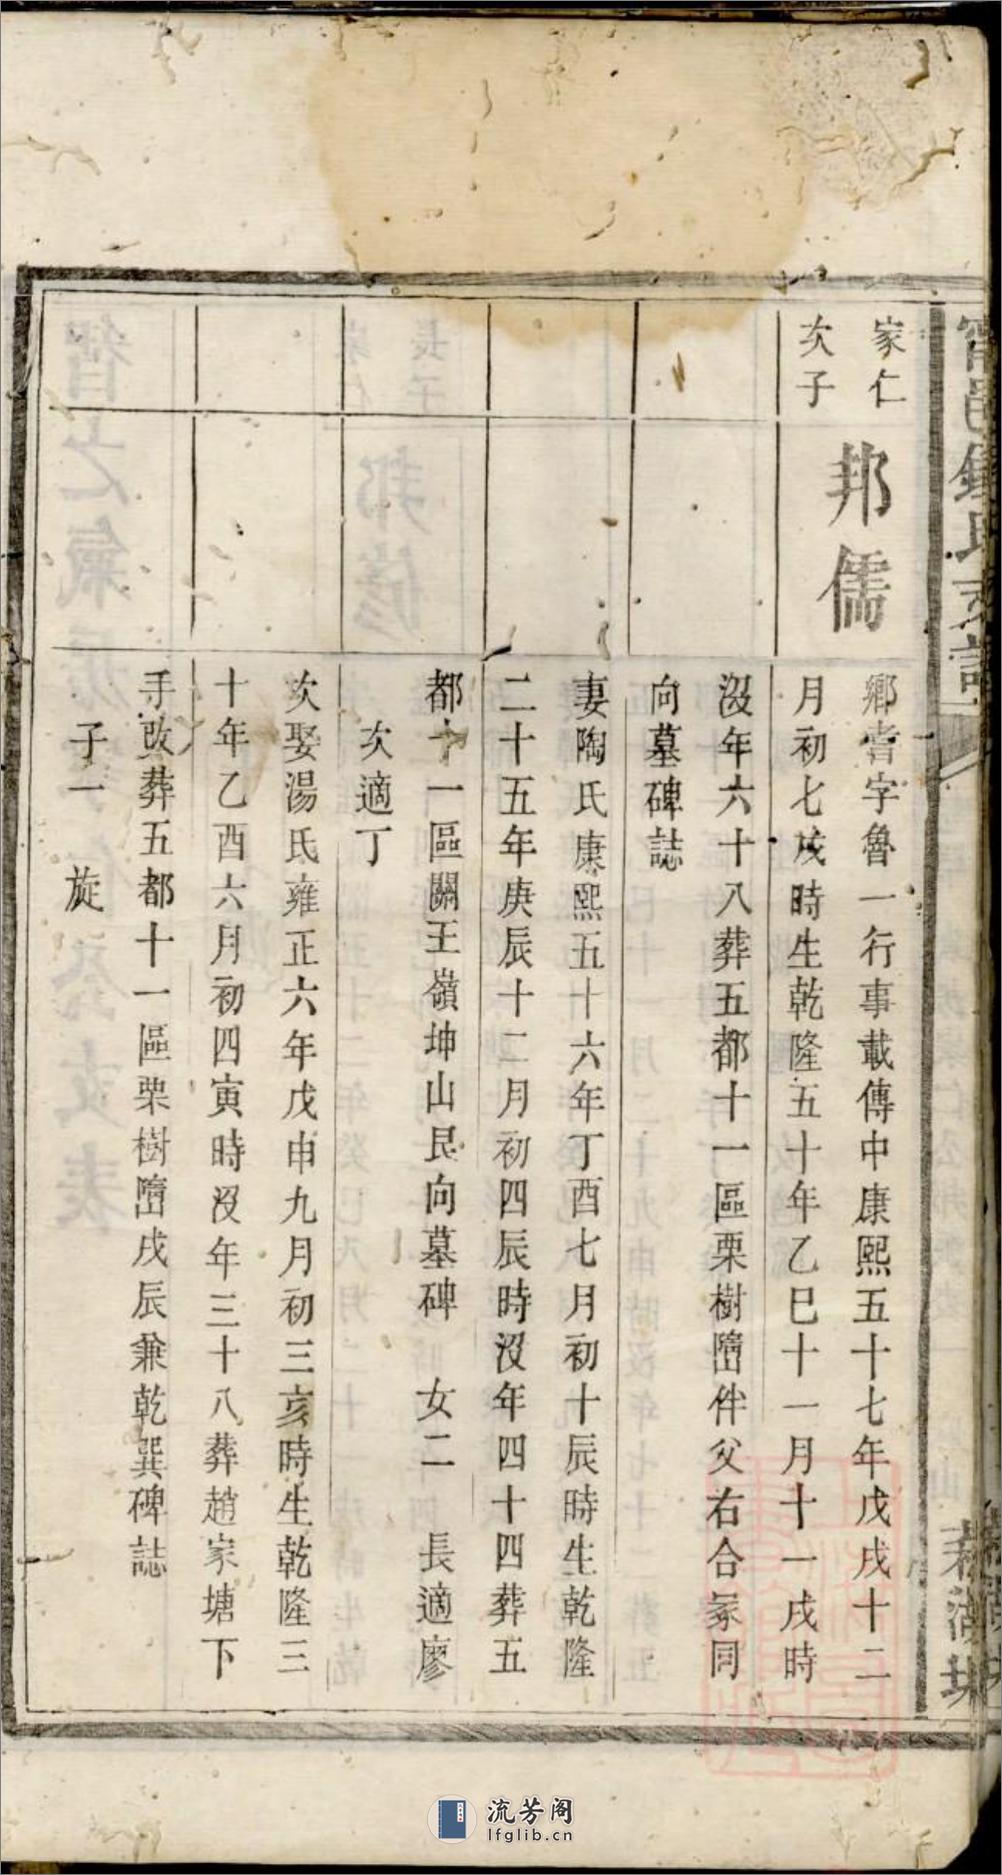 家仁
次子
邦儒
鄉耆字魯一行事載傳中康熙五十七年戊戌十二
月初七戌時生乾隆五十年乙巳十一月十一戌時
沒年六十八葬五都十一區栗樹隯伴父右合冢同
向墓碑誌
妻陶氏康熙五十六年丁酉七月初十辰時生乾隆
二十五年庚辰十二月初四辰時沒年四十四葬五
都十一區關王嶺坤山艮向墓碑 女二 長適廖
次適丁
次娶湯氏雍正六年戊申九月初三亥時生乾隆三
十年乙酉六月初四寅時沒年三十八葬趙家塘下
手改葬五都十一區栗樹隯戌辰兼乾巽碑誌
子一 旋
流芳阁
lfglib.cn